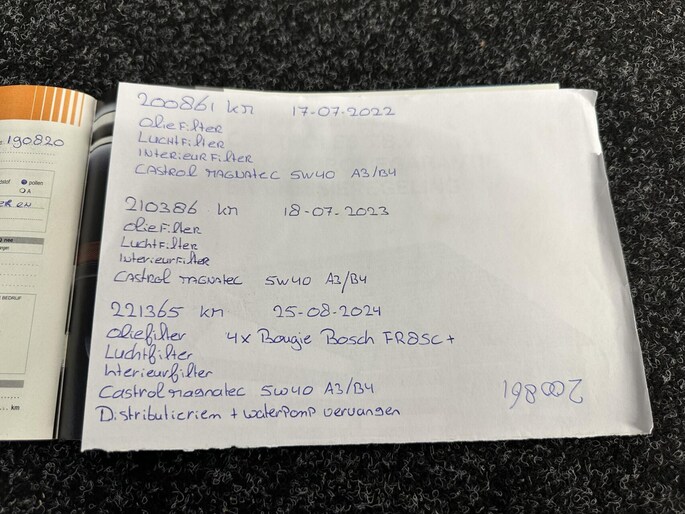 200861 km 17-07-2022
OlieFilter
LuchtFilter
InterieurFilter
Castrol Magnatec 5W40 A3/B4
210386 km 18-07-2023
OlieFilter
LuchtFilter
Interieurfilter
Castrol Magnatec 5W40 A3/B4
221365 km 25-08-2024
Oliefilter 4x Bougie Bosch FR8SC+
Luchtfilter
Interieurfilter
Castrol magnatec 5W40 A3/B4
Distributieriem + waterpomp vervangen
200861
190820
pollen
A
km